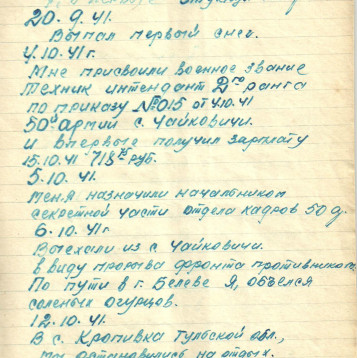 20. 9. 41.
Выпал первый снег.
4.10.41 г.
Мне присвоили военное звание
техник интендант 2го ранга
по приказу №015 от 4.10.41
50й армии с. Чайковичи.
и впервые получил зарплату
15.10.41 718 руб.
5.10.41.
меня назначили начальником
секретной части отдела кадров 50 а.
6.10.41 г
Выехали из с Чайковичи.
в виду прорыва фронта противником
По пути в г. Белеве Я, объелся
соленых огурцов.
12.10.41.
В с. Кропивка Тульской обл.,
мы остановились на отдых.